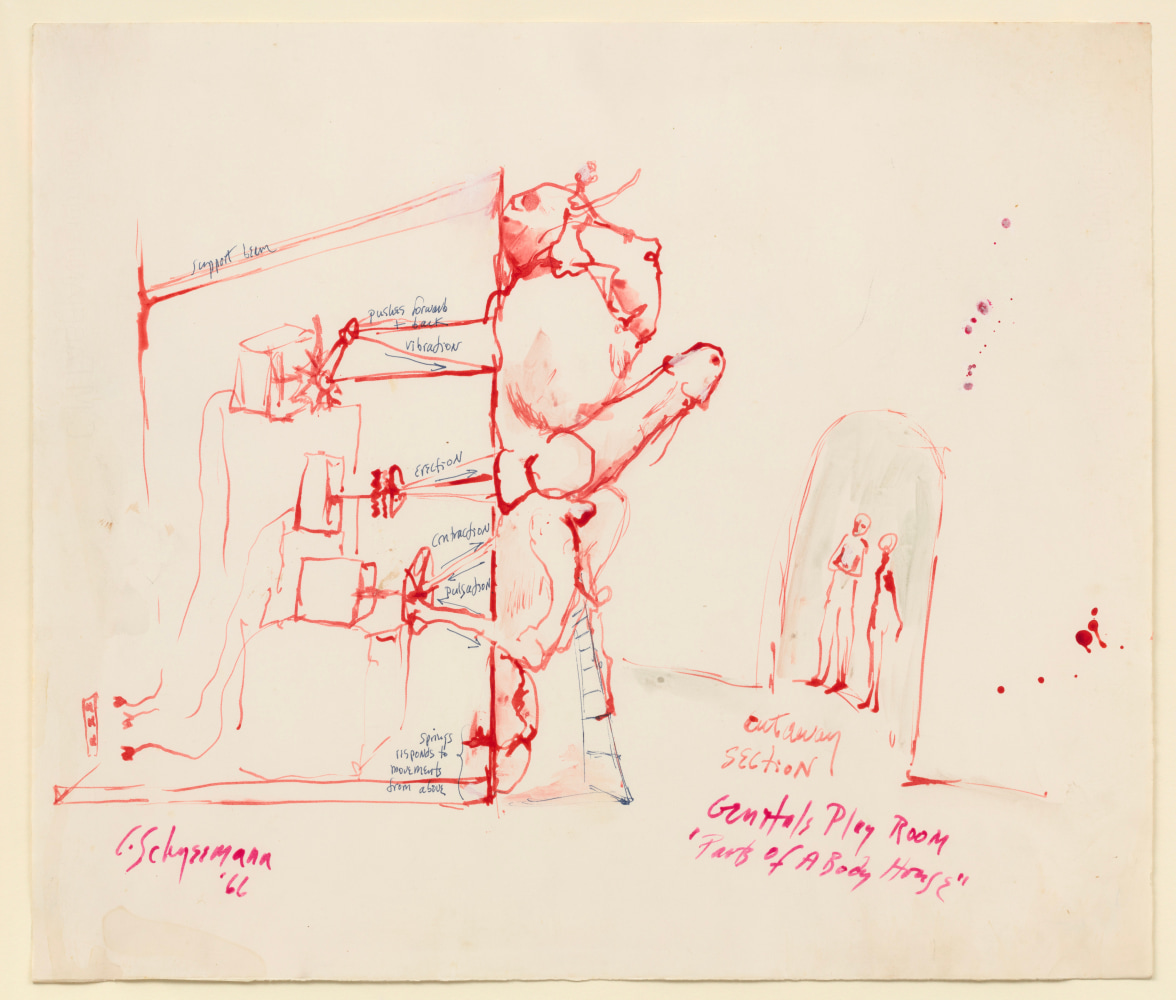 support beam
pushes forward
+ back
vibration
ERECtiON
CONtRACtiON
pulsatiON
springs
risponds to
movements
from above
cutaway
SECtiON
C. Schneemann
'66
Genitals Play Room
"Parts of A Body House"